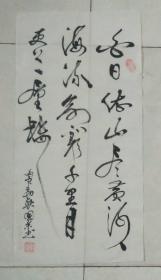 白日依山尽黄河入
海流欲窮千里目
更上一層楼